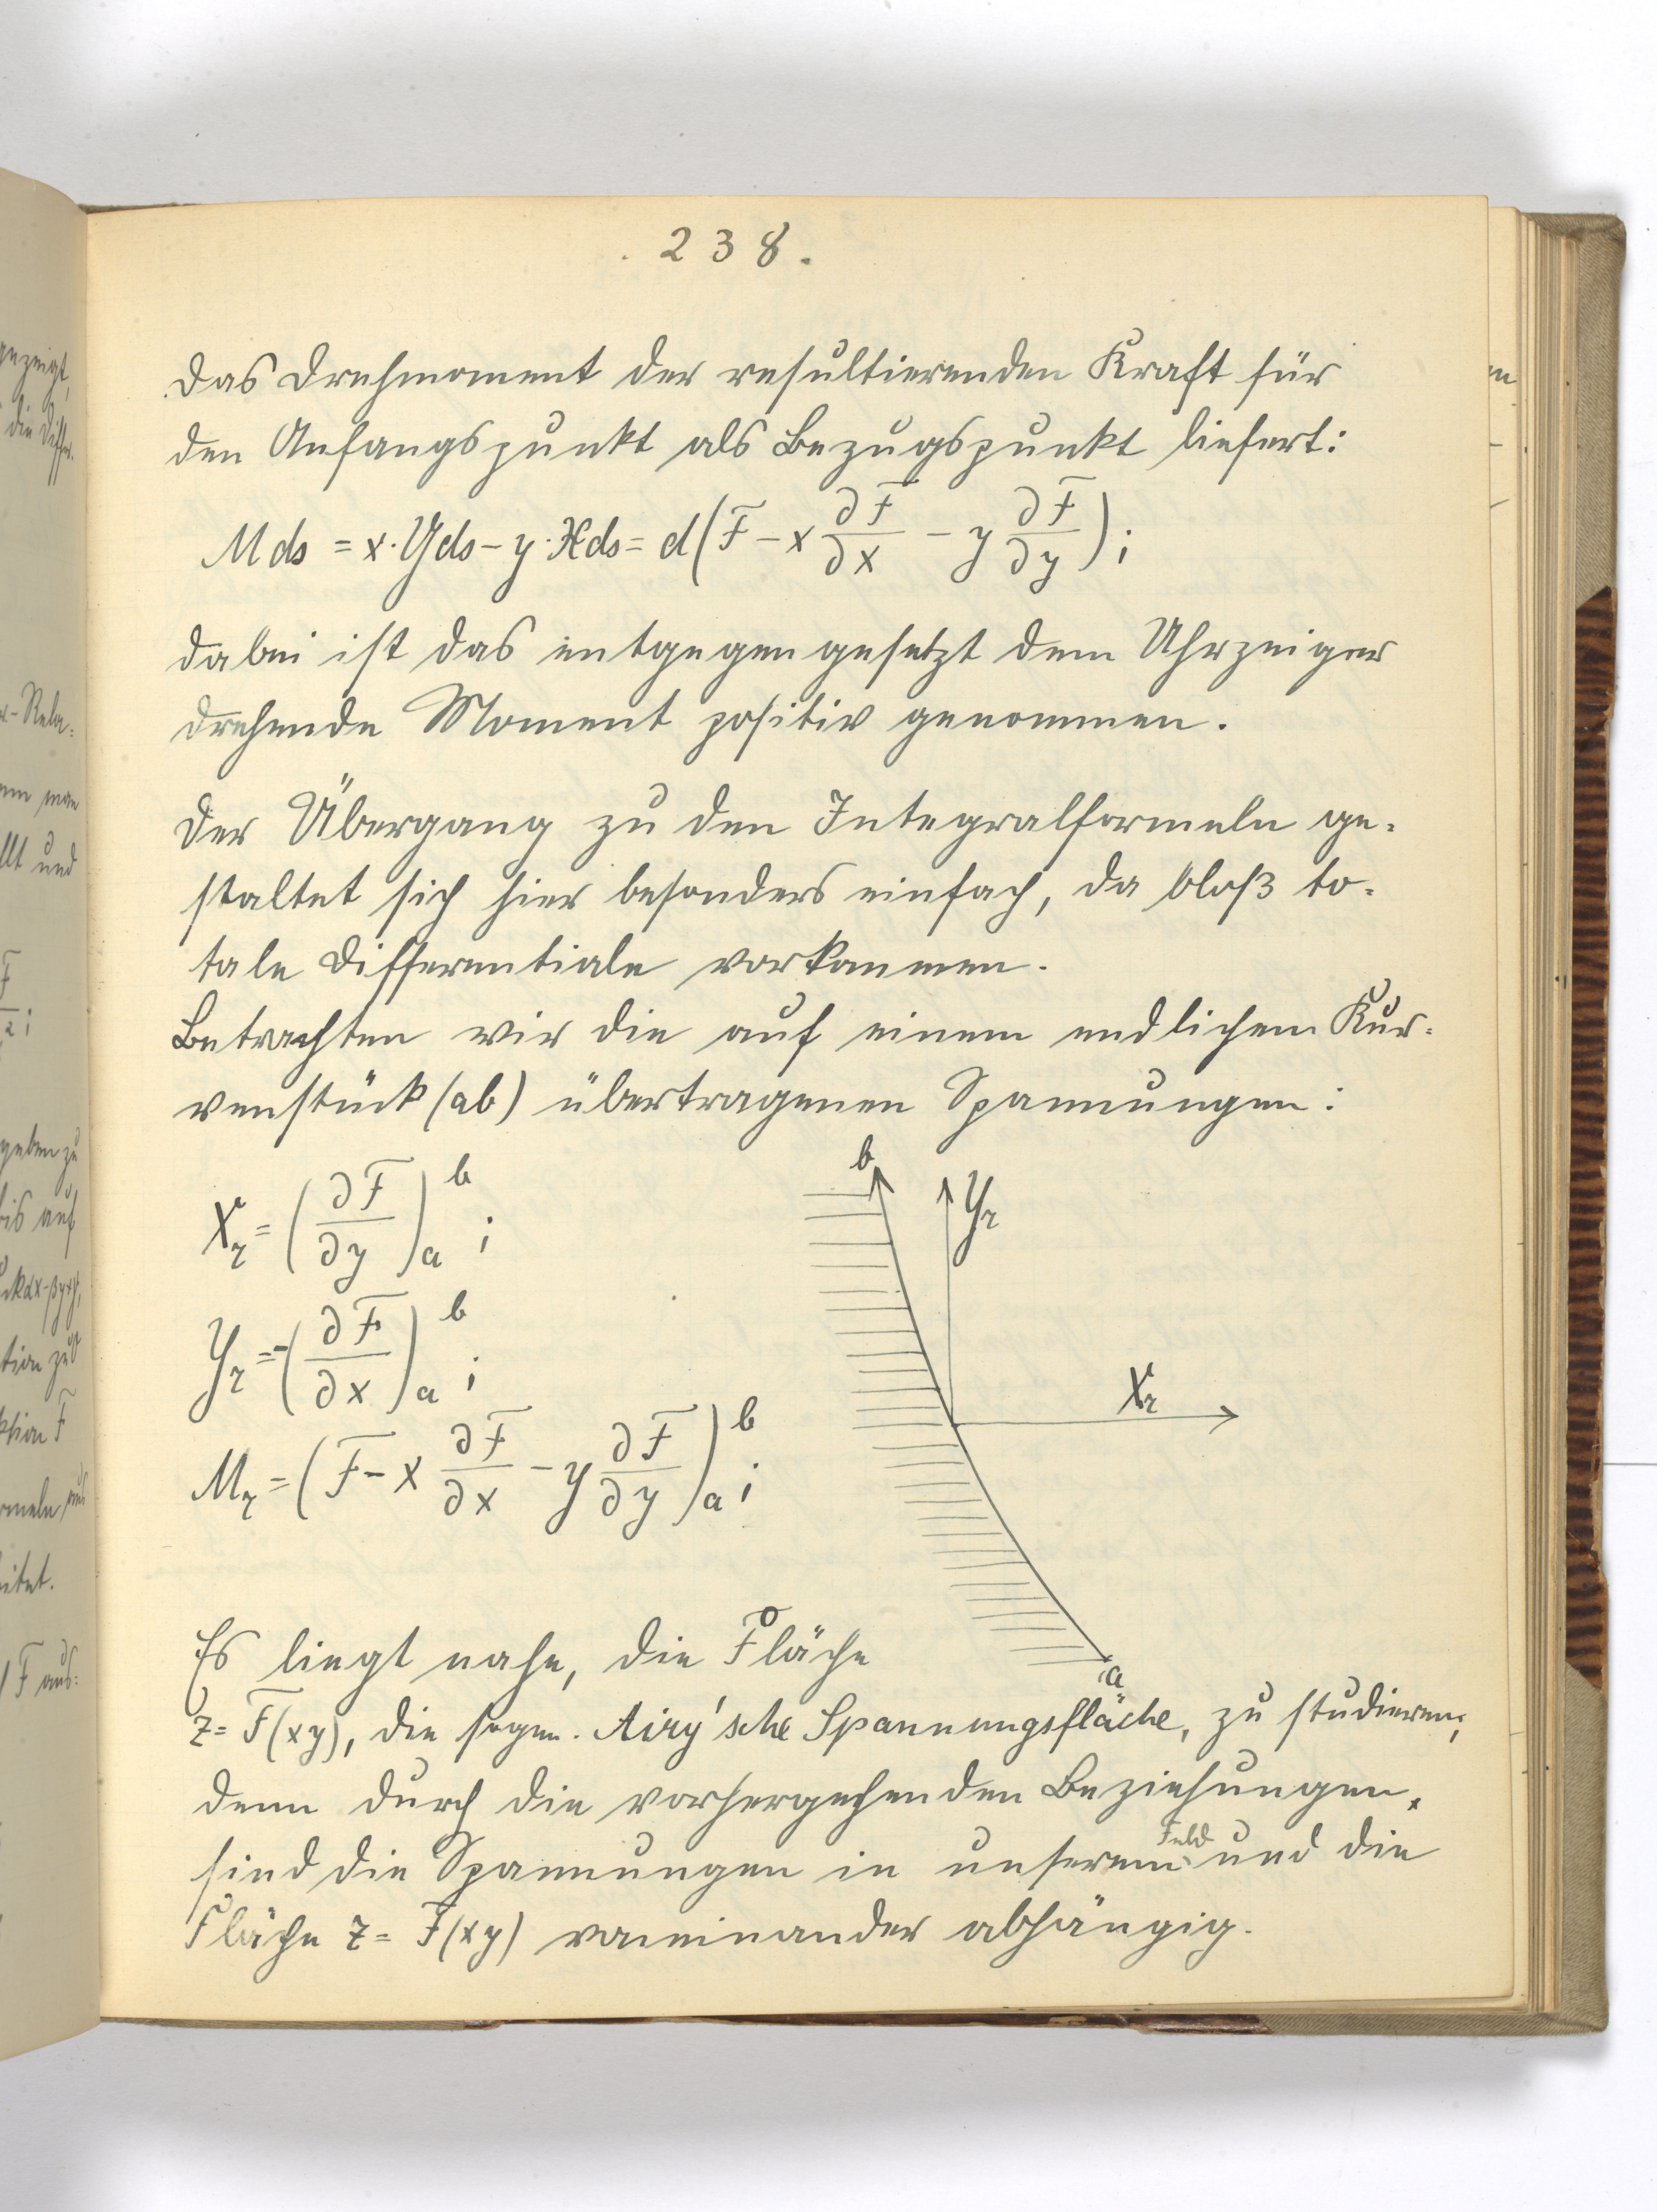 . 238.
Das Drehmoment der resultierenden Kraft für
den Anfangspunkt als Bezugspunkt liefert:
M ds = x·Yds − y·Xds = d(F − x ∂F/∂x − y ∂F/∂y);
dabei ist das entgegengesetzt dem Uhrzeiger
drehende Moment positiv genommen.
Der Übergang zu den Integralformeln ge-
staltet sich hier besonders einfach, da bloß to-
tale Differentiale vorkommen.
Betrachten wir die auf einem endlichem Kur-
venstück (ab) übertragenen Spannungen:
X_r = (∂F/∂y)_a^b ;
Y_r = −(∂F/∂x)_a^b ;
M_r = (F − x ∂F/∂x − y ∂F/∂y)_a^b ;
b
Y_r
X_r
a
Es liegt nahe, die Fläche
z = F(xy), die sogen. Airy'sche Spannungsfläche, zu studieren;
denn durch die vorhergehenden Beziehungen,
sind die Spannungen in unserem Feld und die
Fläche z = F(xy) voneinander abhängig.
gezeigt,
die Differ.
-Rela-
man
llt und
F
2 ;
geben zu
bis auf
tion zu
ktion F
rmeln
itet.
F aus-
en